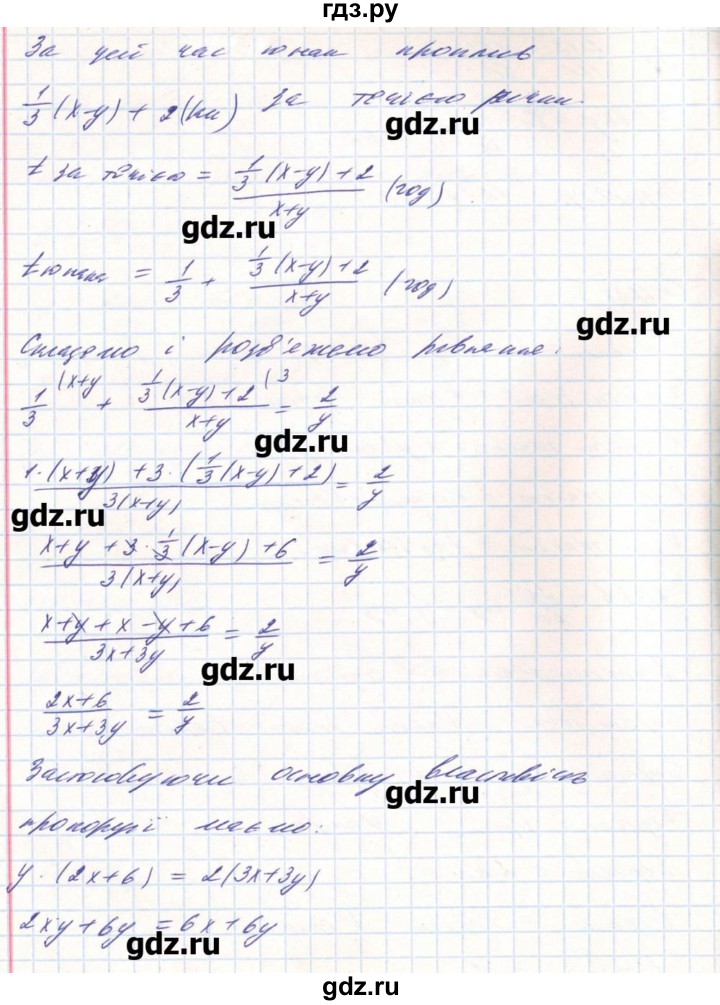 гдз.ру
За цей час юнак проплив
1/3 (x-y) + 2 (км) за течією річки.
gdz.ru
t за течією = (1/3 (x-y) + 2)/(x+y) (год)
gdz.ru
t юнака = 1/3 + (1/3 (x-y) + 2)/(x+y) (год)
gdz.ru
Складемо і розв'яжемо рівняння:
1/3 (x+y + (1/3 (x-y) + 2)/(x+y) (3 = 2/y
gdz.ru
(1·(x+y) + 3·(1/3 (x-y) + 2))/(3(x+y)) = 2/y
gdz.ru
(x+y + 3·1/3 (x-y) + 6)/(3(x+y)) = 2/y
gdz.ru
(x+y+x-y+6)/(3x+3y) = 2/y
gdz.ru
(2x+6)/(3x+3y) = 2/y
Застосовуючи основну властивість
gdz.ru
пропорції маємо:
y·(2x+6) = 2(3x+3y)
2xy+6y = 6x+6y
gdz.ru
гдз.ру